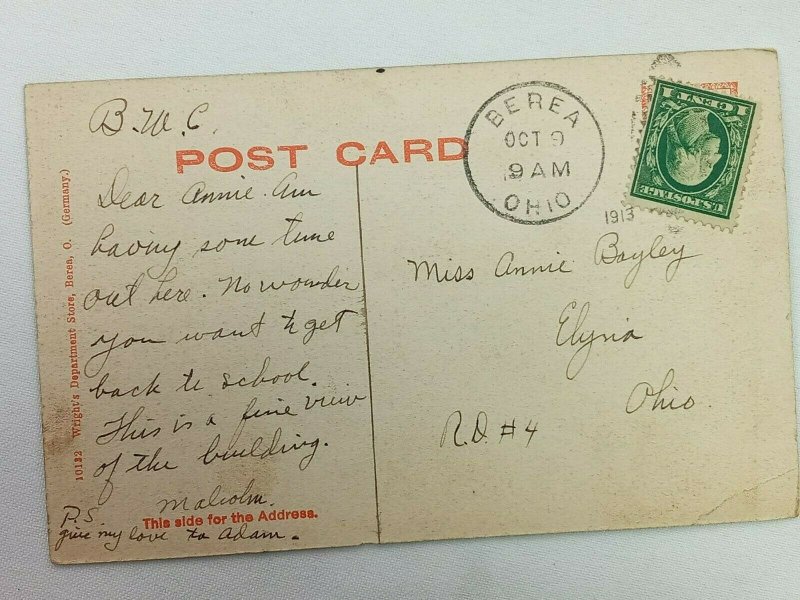 B.W.C.
POST CARD
Dear Annie. Am
having some time
out here. No wonder
you want to get
back to school.
This is a fine view
of the building.
Malcolm.
This side for the Address.
P.S.
give my love to Adam.
10122 Wright's Department Store, Berea, O. (Germany.)
BEREA
OCT 9
9 AM
OHIO
1913
U.S. POSTAGE
1 CENT 1
Miss Annie Bayley
Elyria
Ohio.
R.D. #4